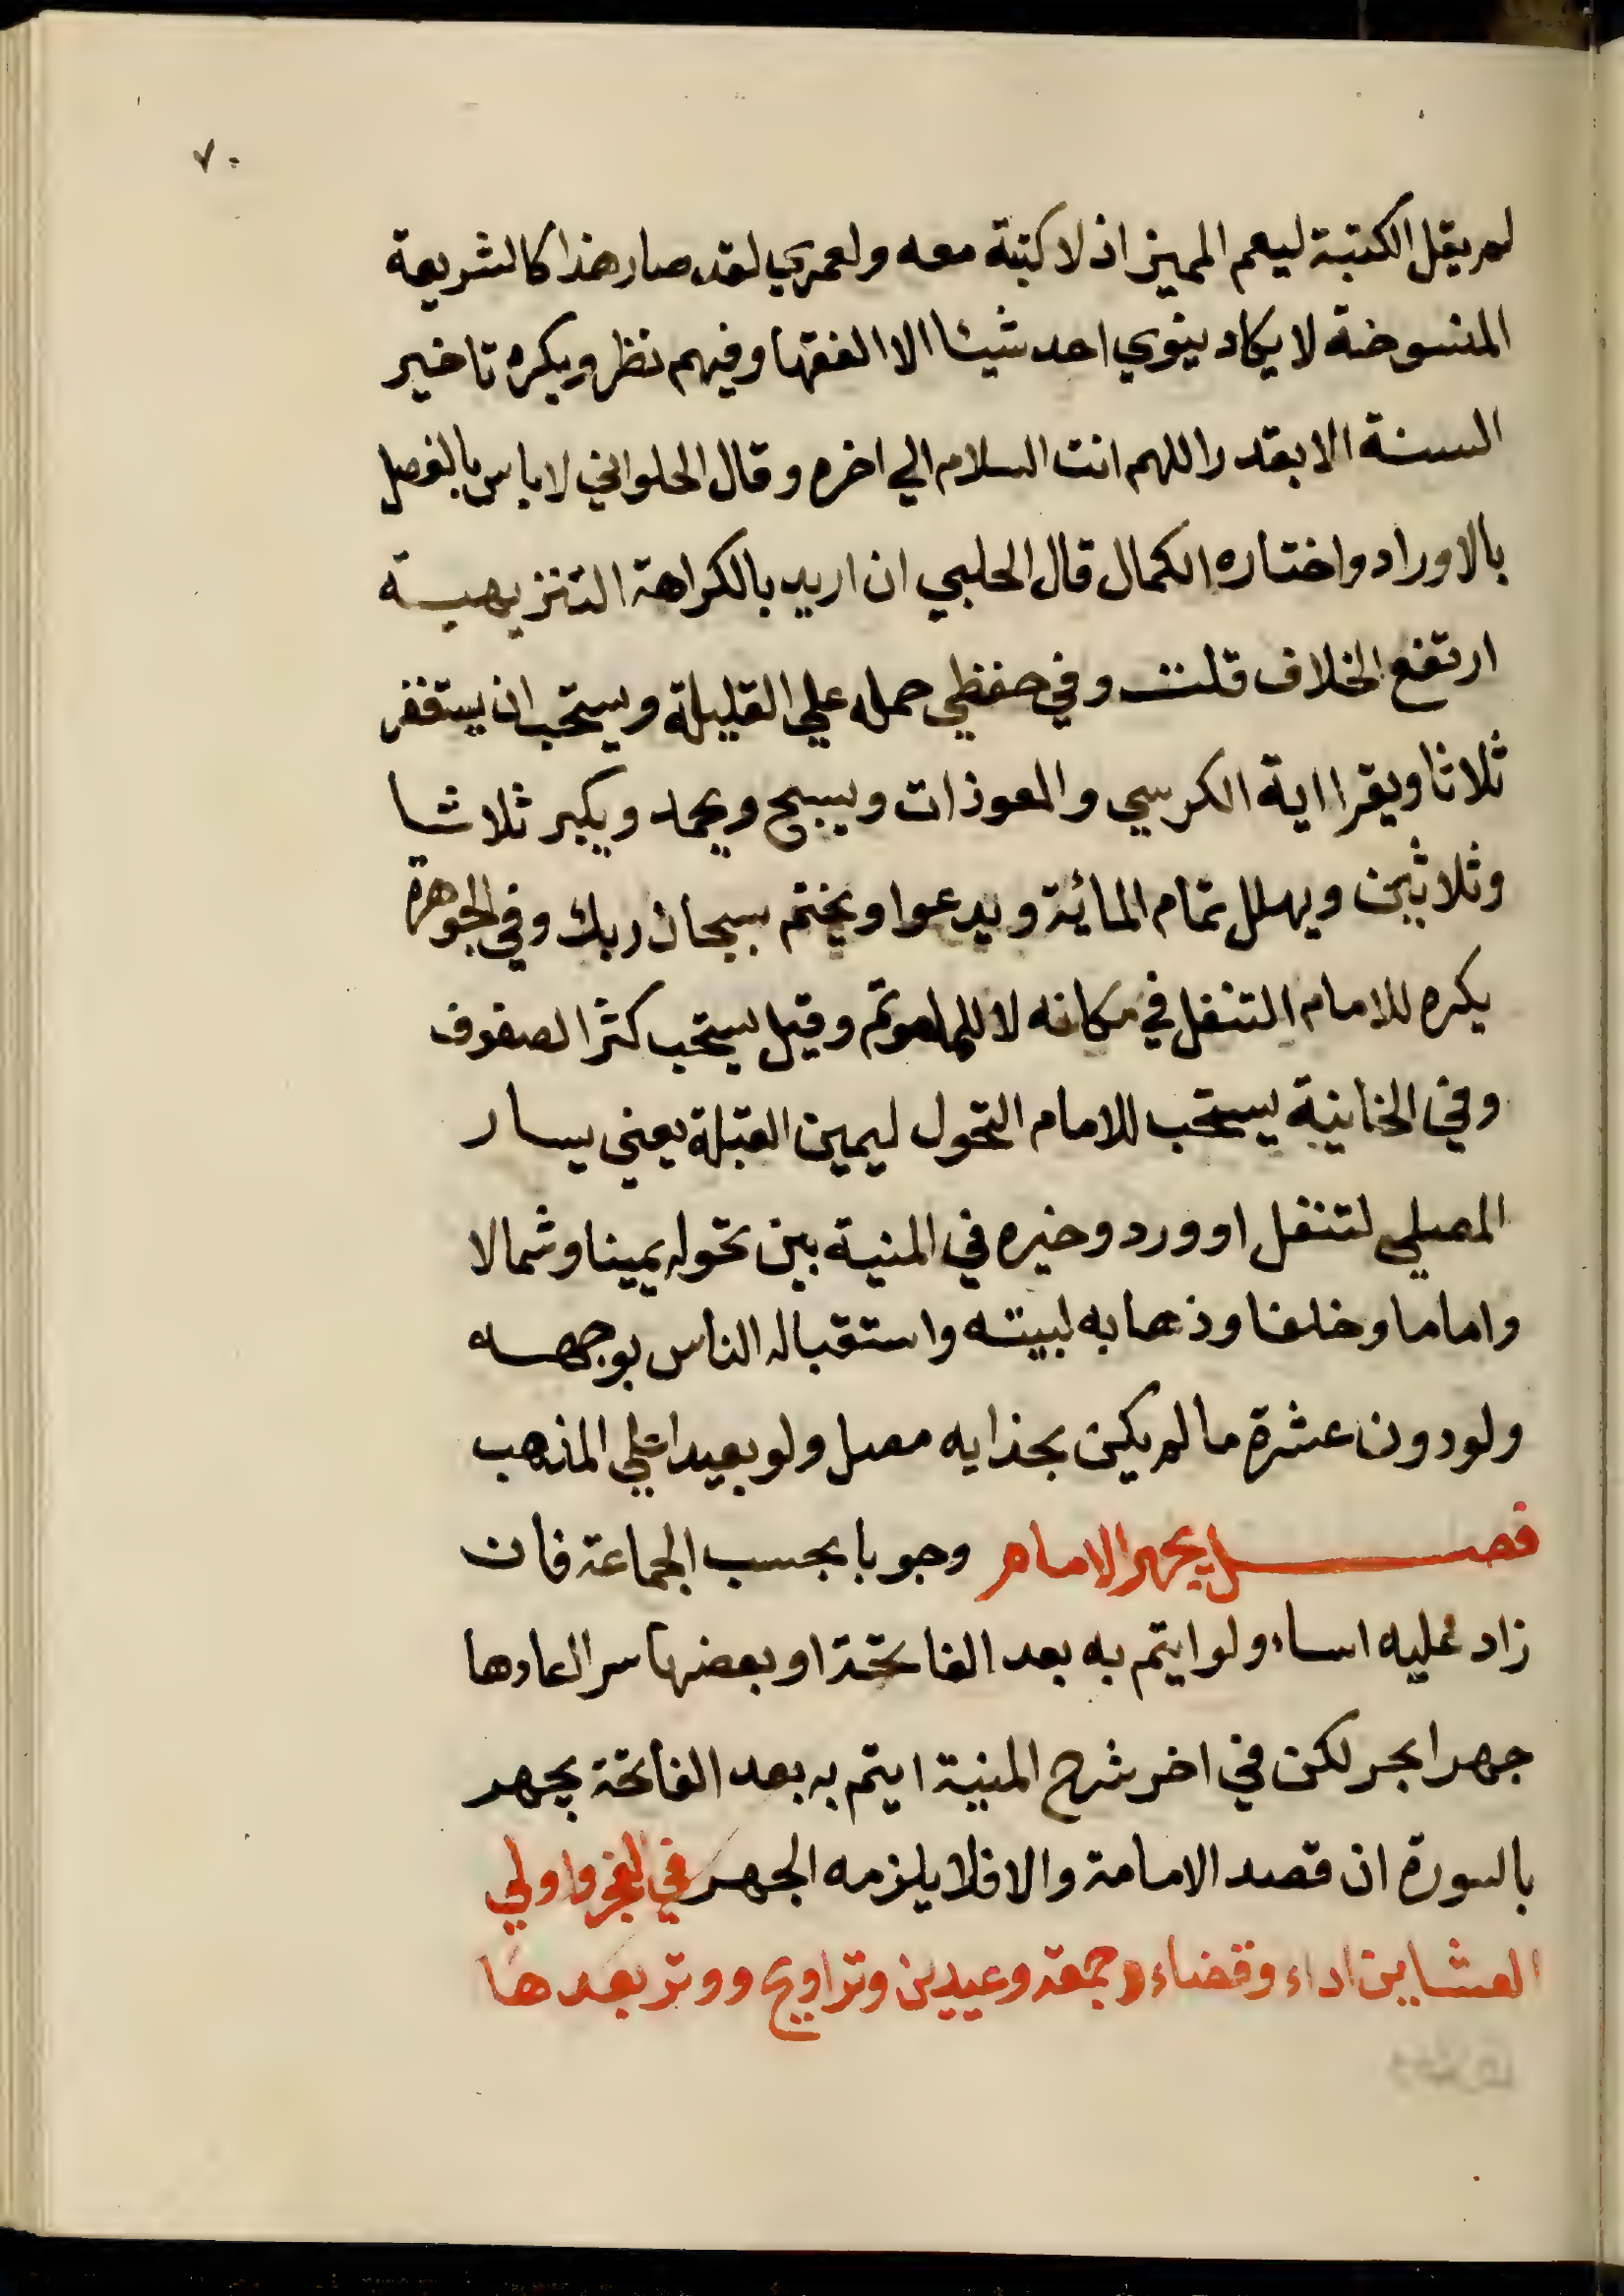 ٧٠
لم يقل الكتبة ليعم المميز اذ لا كتبة معه ولعمري لقد صار هذا كالشريعة
المنسوخة لا يكاد ينوي احد شيئا الا الفقها وفيهم نظر ويكره تاخير
السنة الا بقدر اللهم انت السلام الي اخره وقال الحلواني لا باس بالفصل
بالاوراد واختاره الكمال قال الحلبي ان اريد بالكراهة التنزيهية
ارتفع الخلاف قلت وفي حفظي حمله علي القليلة ويستحب ان يستغفر
ثلاثا ويقرا اية الكرسي والمعوذات ويسبح ويحمد ويكبر ثلاثا
وثلاثين ويهلل تمام المائة ويدعوا ويختم بسبحان ربك وفي الجوهرة
يكره للامام التنفل في مكانه لا للموتم وقيل يستحب كثر الصفوف
وفي الخانية يستحب للامام التحول ليمين القبلة يعني يسار
المصلي لتنفل او ورد وخيره في المنية بين تحوله يمينا وشمالا
واماما وخلفا وذهابه لبيته واستقباله الناس بوجهه
ولو دون عشرة ما لم يكن بحذايه مصل ولو بعيدا علي المذهب
فصل يجهر الامام وجوبا بحسب الجماعة فان
زاد عليه اساء ولو ايتم به بعد الفاتحة او بعضها سرا اعادها
جهرا بحر لكن في اخر شرح المنية ايتم به بعد الفاتحة يجهر
بالسورة ان قصد الامامة والا فلا يلزمه الجهر في الفجر واولي
العشاين اداء وقضاء وجمعة وعيدين وتراويح ووتر بعدها